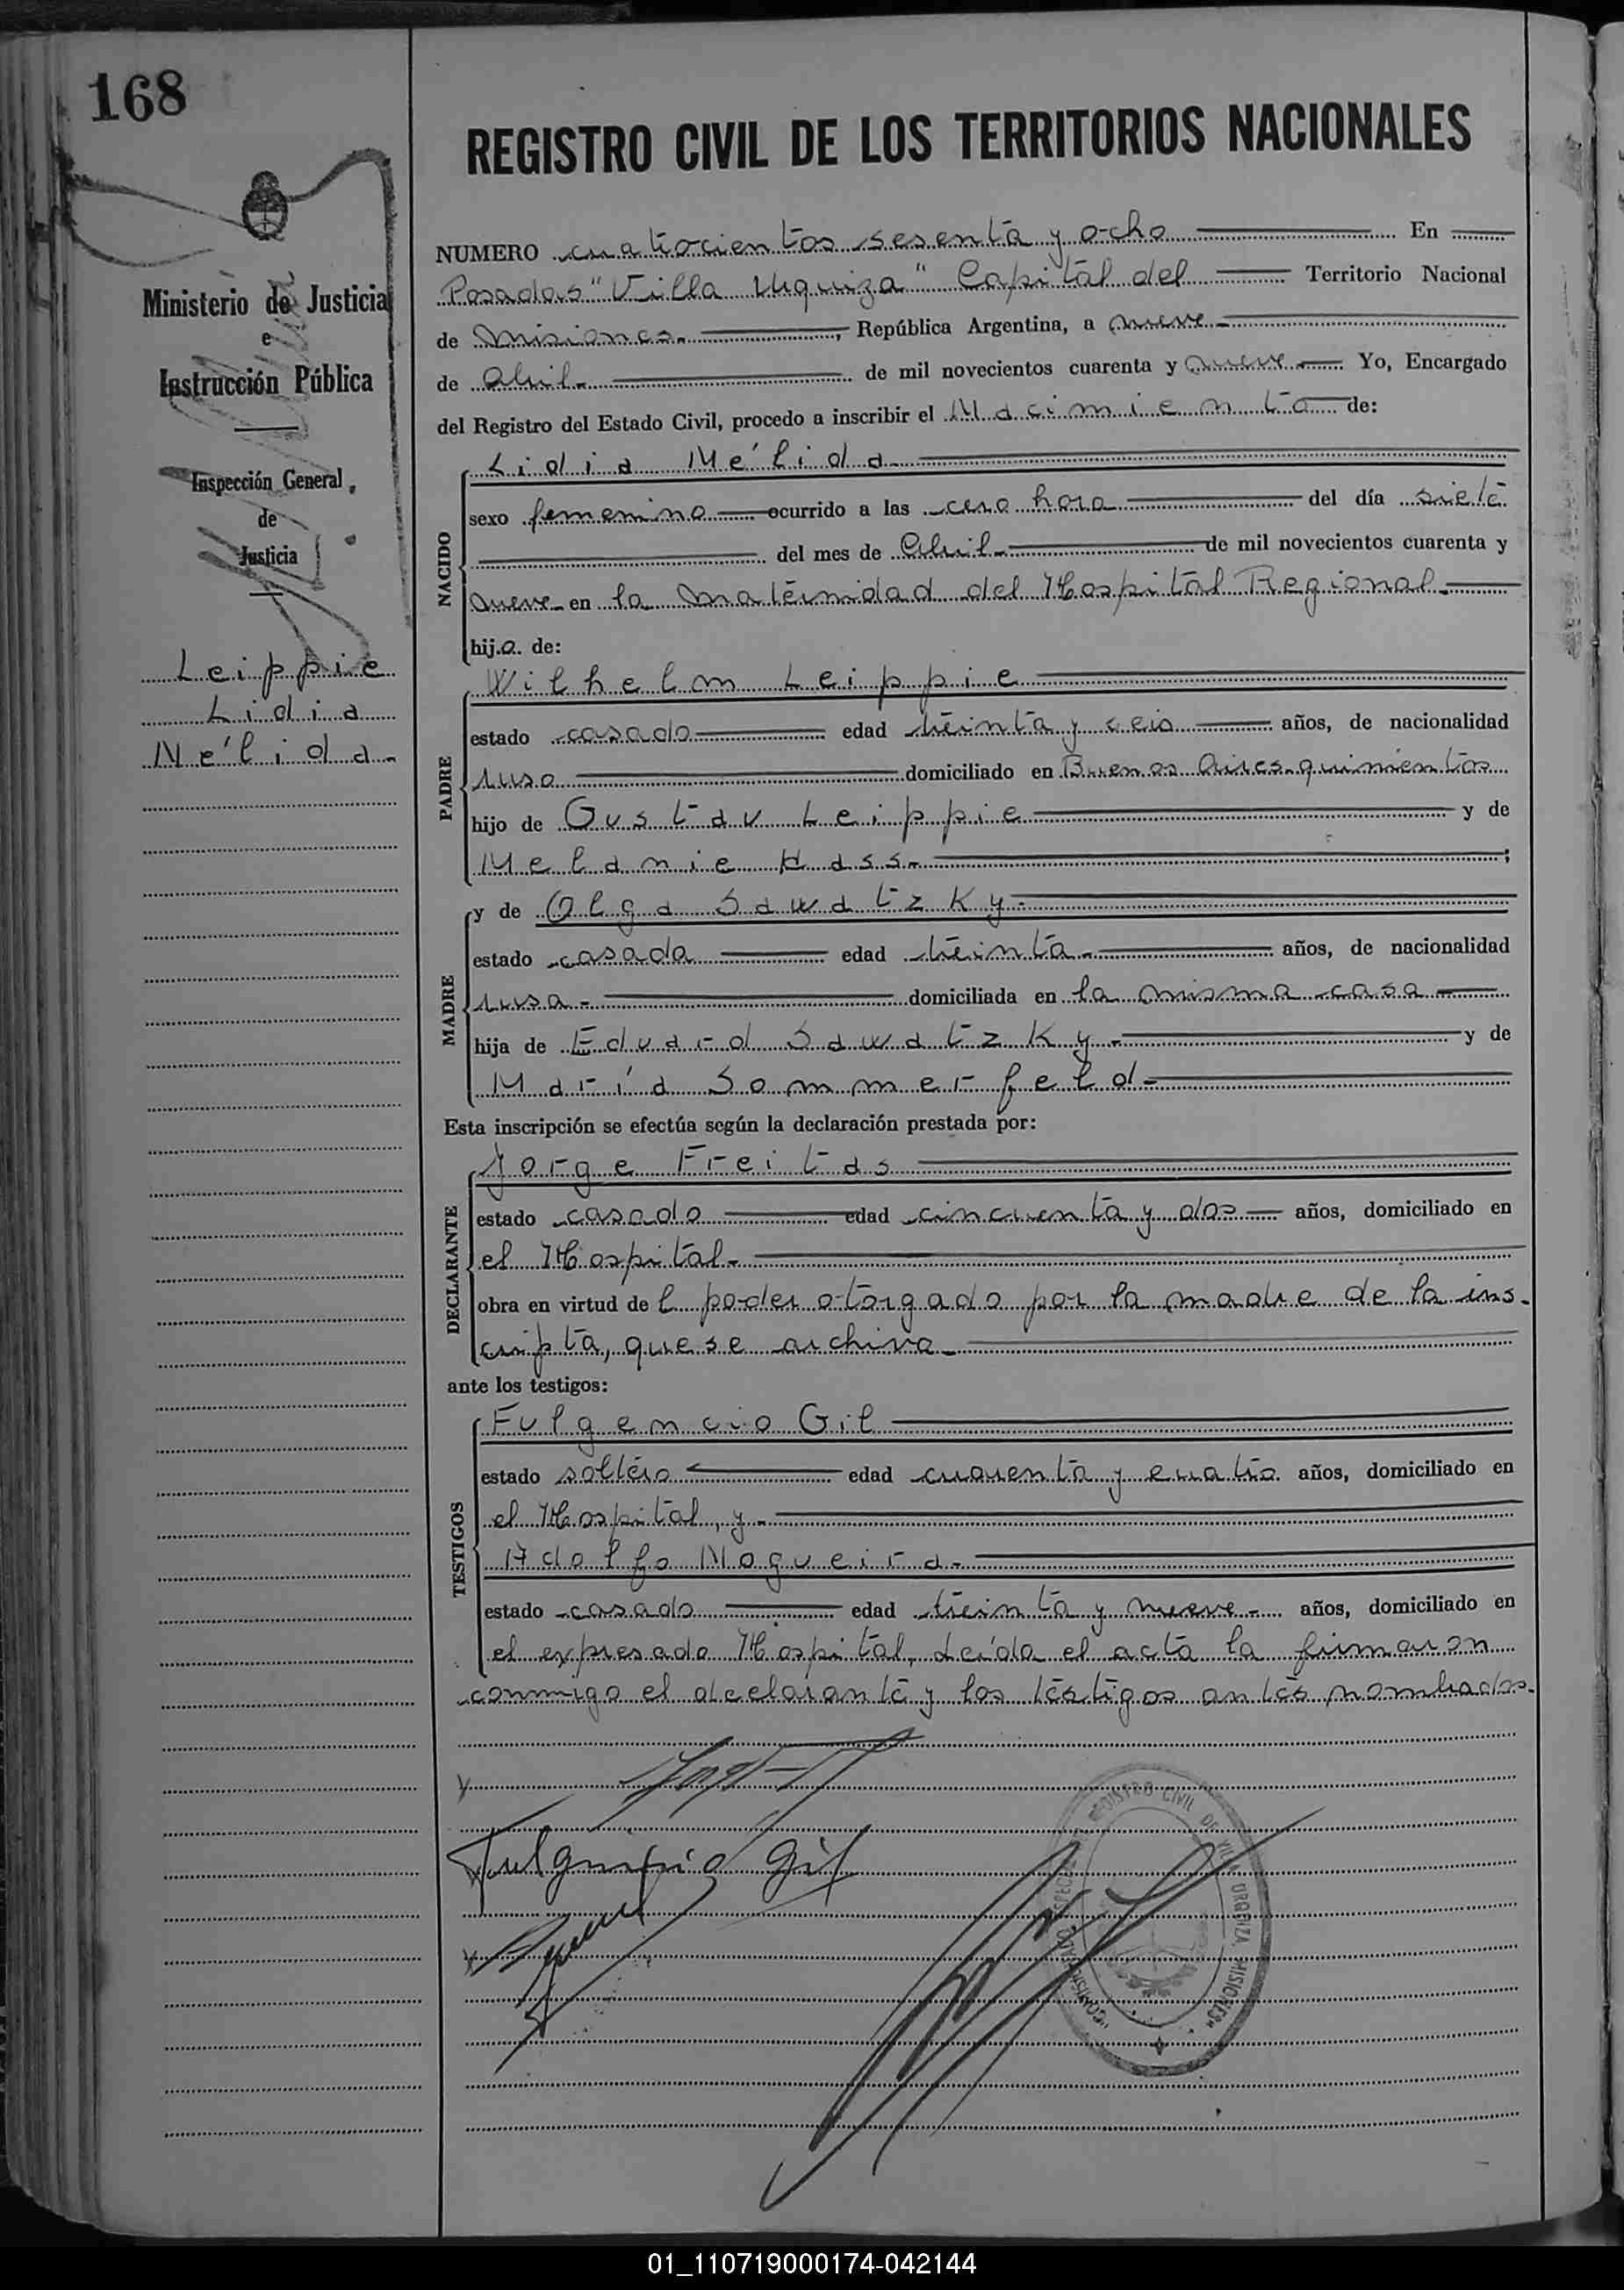 168
REGISTRO CIVIL DE LOS TERRITORIOS NACIONALES
Ministerio de Justicia
e
Instrucción Pública
Inspección General
de
Justicia
Leippie
Lidia
Nélida.
NUMERO cuatrocientos sesenta y ocho En
Posadas "Villa Urquiza" Capital del Territorio Nacional
de Misiones. , República Argentina, a nueve
de Abril de mil novecientos cuarenta y nueve Yo, Encargado
del Registro del Estado Civil, procedo a inscribir el Nacimiento de:
NACIDO
Lidia Nélida
sexo femenino ocurrido a las cero hora del día siete
del mes de Abril de mil novecientos cuarenta y
nueve en la maternidad del Hospital Regional
hija de:
PADRE
Wilhelm Leippie
estado casado edad treinta y seis años, de nacionalidad
ruso domiciliado en Buenos Aires quinientos
hijo de Gustav Leippie y de
Melanie Hass ;
MADRE
y de Olga Sawatzky
estado casada edad treinta años, de nacionalidad
rusa domiciliada en la misma casa
hija de Eduard Sawatzky y de
María Sommerfeld
Esta inscripción se efectúa según la declaración prestada por:
DECLARANTE
Jorge Freitas
estado casado edad cincuenta y dos años, domiciliado en
el Hospital
obra en virtud del poder otorgado por la madre de la ins-
cripta, que se archiva
ante los testigos:
TESTIGOS
Fulgencio Gil
estado soltero edad cuarenta y cuatro años, domiciliado en
el Hospital, y
Adolfo Nogueira
estado casado edad treinta y nueve años, domiciliado en
el expresado Hospital, Leída el acta la firmaron
conmigo el declarante y los testigos antes nombrados.
Fulgencio Gil
REGISTRO CIVIL DE VILLA URQUIZA MISIONES
01_110719000174-042144